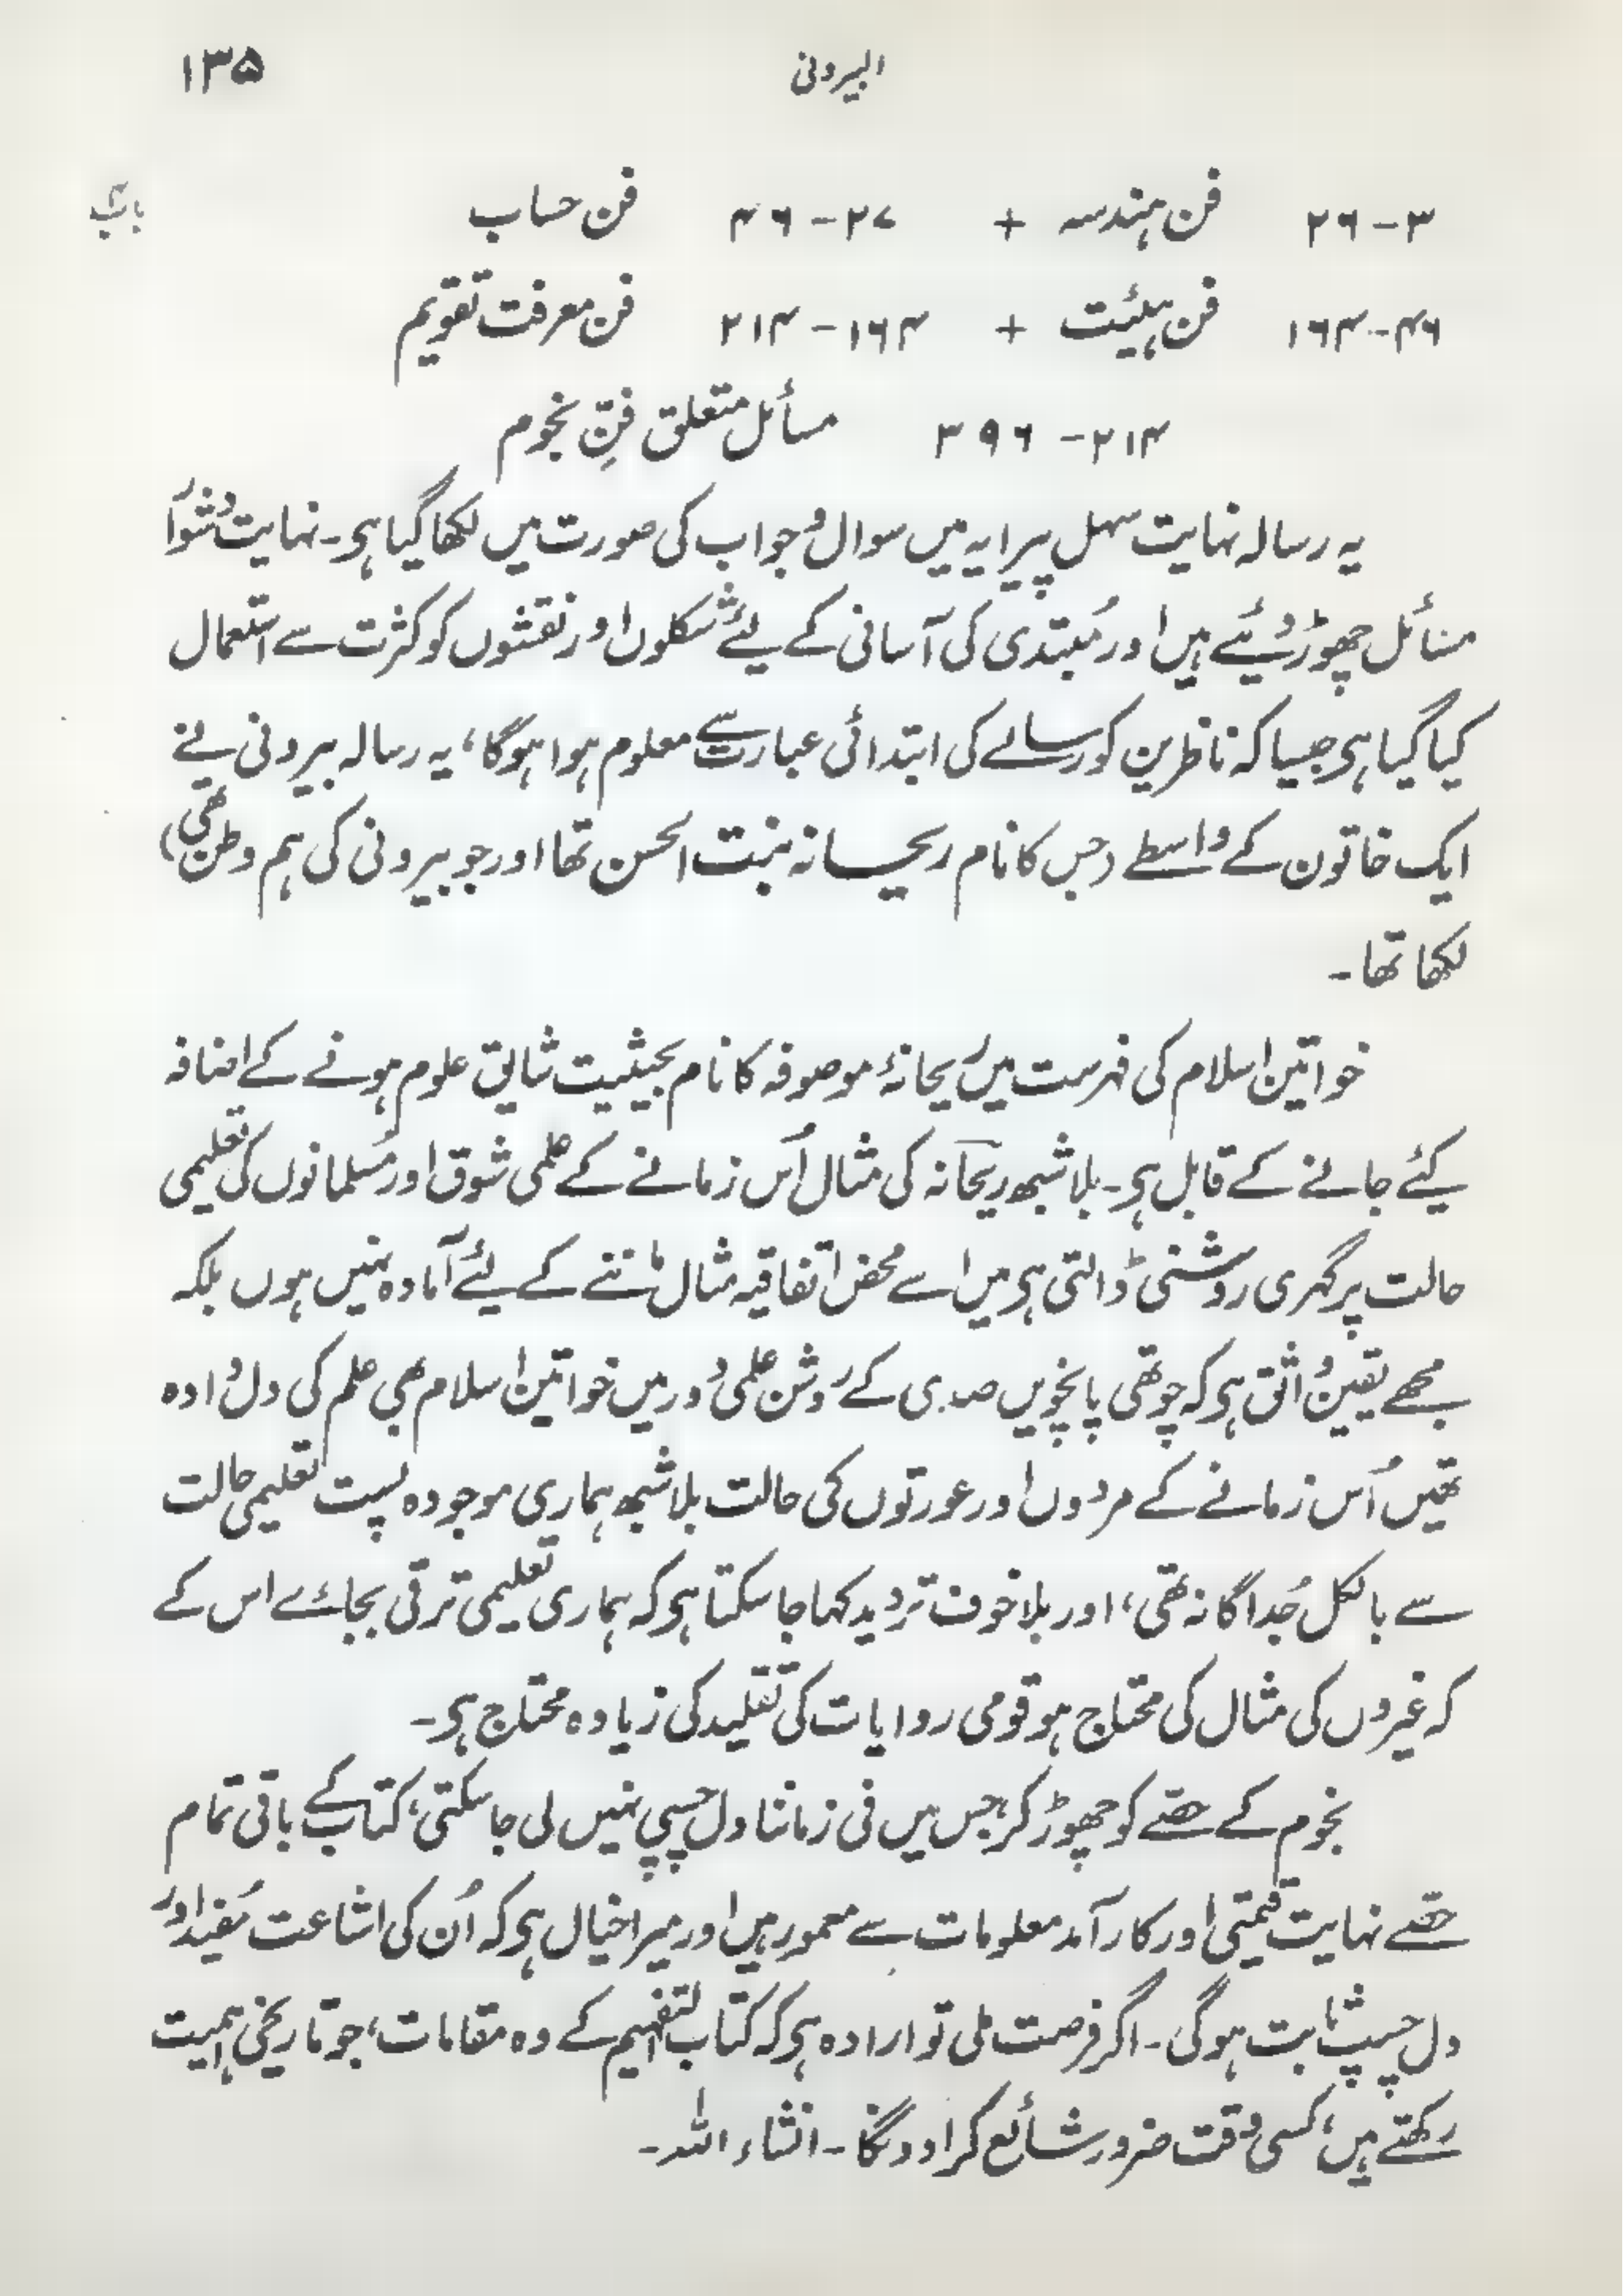 البیرونی ۱۳۵
باب
۳-۲۶ فن ہندسہ + ۲۷-۴۶ فن حساب
۴۶-۱۶۴ فن ہیئت + ۱۶۴-۲۱۴ فن معرفت تقویم
۲۱۴-۳۹۶ مسائل متعلق فنِّ نجوم
یہ رسالہ نہایت سہل پیرایہ میں سوال و جواب کی صورت میں لکھا گیا ہی۔ نہایت دشوار
مسائل چھوڑ دیئے ہیں اور مُبتدی کی آسانی کے لیے شکلوں اور نقشوں کو کثرت سے استعمال
کیا گیا ہی جیسا کہ ناظرین کو رسالے کی ابتدائی عبارت سے معلوم ہوا ہوگا، یہ رسالہ بیرونی نے
ایک خاتون کے واسطے (جس کا نام ریحانہ بنت الحسن تھا اور جو بیرونی کی ہم وطن تھی)
لکھا تھا۔
خواتین اسلام کی فہرست میں ریحانۂ موصوفہ کا نام بحیثیت شایق علوم ہونے کے اضافہ
کیئے جانے کے قابل ہی۔ بلا شبھ ریحانہ کی مثال اُس زمانے کے علمی شوق اور مُسلمانوں کی تعلیمی
حالت پر گہری روشنی ڈالتی ہی میں اسے محض اتفاقیہ مثال ماننے کے لیئے آمادہ نہیں ہوں بلکہ
مجھے یقین واثق ہی کہ چوتھی پانچویں صدی کے روشن علمی دور میں خواتین اسلام بھی علم کی دل دادہ
تھیں اُس زمانے کے مردوں اور عورتوں کی حالت بلا شبھ ہماری موجودہ پست تعلیمی حالت
سے بالکل جُداگانہ تھی، اور بلا خوف تردید کہا جا سکتا ہی کہ ہماری تعلیمی ترقی بجائے اس کے
کہ غیروں کی مثال کی محتاج ہو قومی روایات کی تقلید کی زیادہ محتاج ہی۔
نجوم کے حصّے کو چھوڑ کر، جس میں فی زماننا دل چسپی نہیں لی جا سکتی، کتاب کے باقی تمام
حصّے نہایت قیمتی اور کارآمد معلومات سے معمور ہیں اور میرا خیال ہی کہ اُن کی اشاعت مُفید اور
دل چسپ ثابت ہوگی۔ اگر فرصت ملی تو ارادہ ہی کہ کتاب التفہیم کے وہ مقامات، جو تاریخی اہمیت
رکھتے ہیں، کسی وقت ضرور شائع کرا دونگا۔ انشاء اللہ۔